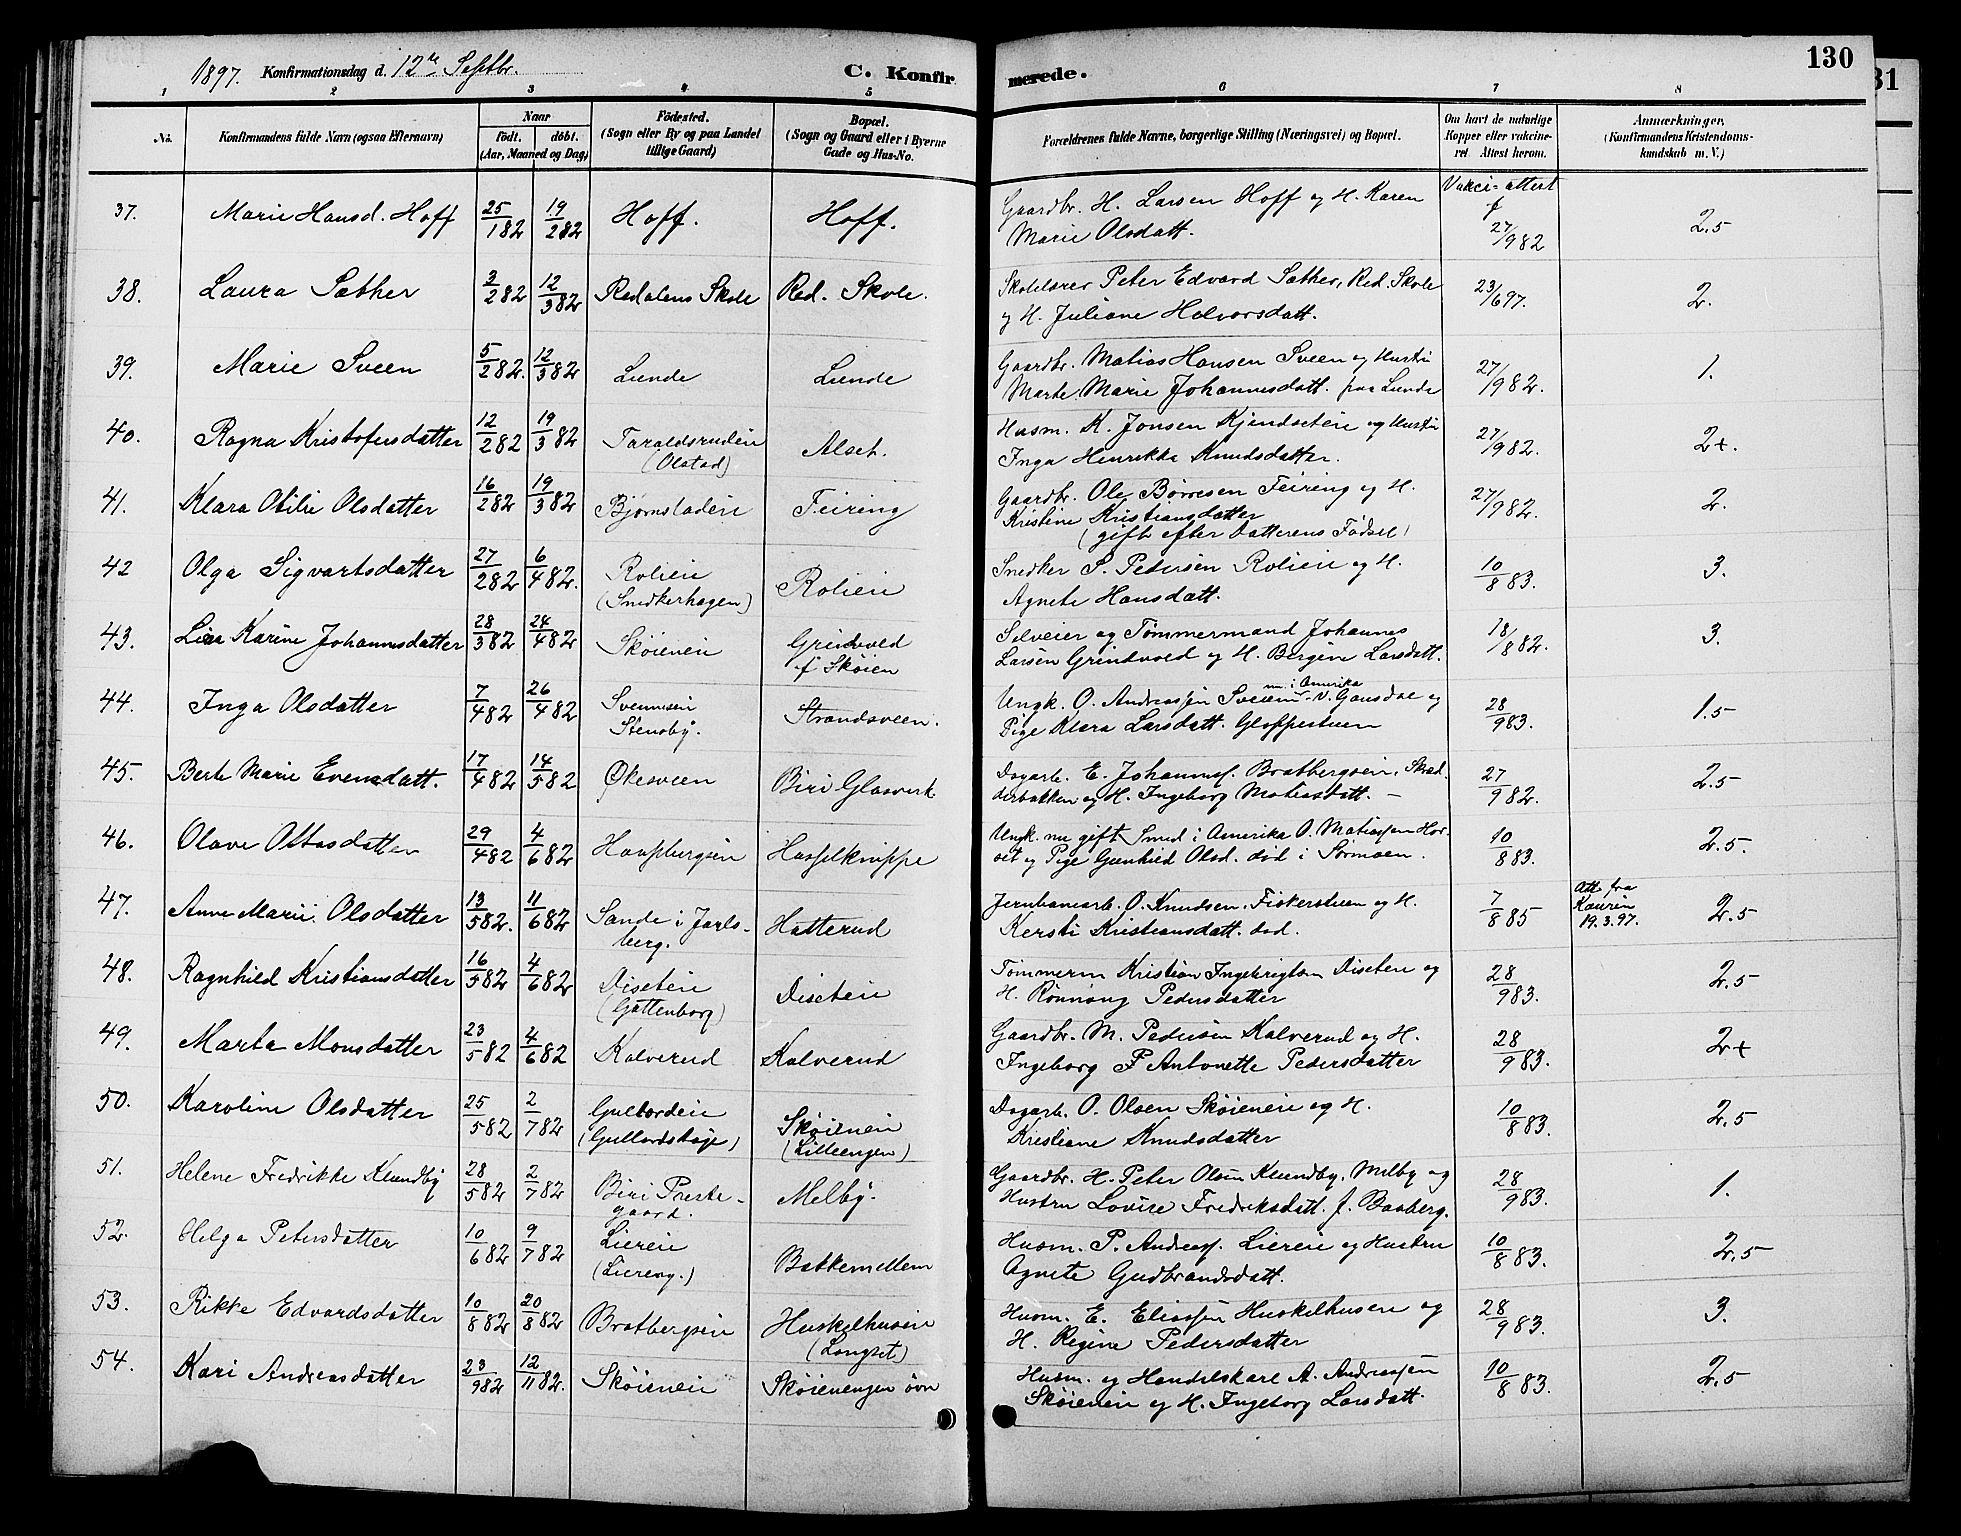 1897. Konfirmationsdag d. 12te Septbr. C. Konfir merede. 130
31
1 2 3 4 5 6 7 8
No. Konfirmandens fulde Navn (ogsaa Efternavn) Naar Födt. döbt. (Aar, Maaned og Dag) Födested. (Sogn eller By og paa Landet tillige Gaard) Bopæl. (Sogn og Gaard eller i Byerne Gade og Hus-No. Forældrenes fulde Navne, borgerlige Stilling (Næringsvei) og Bopæl. Om havt de naturlige Kopper eller vakcineret. Attest herom. Anmærkninger, (Konfirmandens Kristendomskundskab m. V.)
37. Marie Hansd. Hoff 25/1 82 19/2 82 Hoff. Hoff. Gaardbr. H. Larsen Hoff og H. Karen
Marie Olsdatt. Vakci-attest f 27/9 82 2.5
38. Laura Sæther 3/2 82 12/3 82 Redalens Skole Red. Skole. Skolelærer Peter Edvard Sæther, Red. Skole
og H. Juliane Halvorsdatt. 23/6 97. 2.
39. Marie Sveen 5/2 82. 12/3 82 Lunde Lunde Gaardbr. Matias Hansen Sveen og Hustru
Marte Marie Johannesdatt. paa Lunde 27/9 82. 1.
40. Ragna Kristofersdatter 12/2 82 19/3 82 Taraldsrudeie
(Olstad) Alset. Husm. K. Jonsen Kjendseteie og Hustru
Inga Henrikke Knudsdatter. 27/9 82. 2+.
41. Klara Otilie Olsdatter 16/2 82 19/3 82 Bjørnstadeie Feiring Gaardbr. Ole Børresen Feiring og H.
Kristine Kristiansdatter
(gift efter Datterens Fødsel) 27/9 82. 2.
42 Olga Sigvartsdatter 27/2 82 6/4 82. Rolieie
(Snedkerhagen) Rolieie Snedker S. Pedersen Rolieie og H.
Agnete Hansdatt. 10/8 83. 3.
43. Lina Karine Johannesdatter 28/3 82 24/4 82 Skøieneie Grindvold
f Skøien Selveier og Tømmermand Johannes
Larsen Grindvold og H. Bergine Larsdatt. 18/8 82. 3.
44. Inga Olsdatter 7/4 82 26/4 82
Stensby. Strandsveen. Ungk. O. Andreassen nu i Amerika v. Gausdal og
Pige Klara Larsdatt. Gloppestuen 28/9 83. 1.5
45. Berte Marie Evensdatt. 17/4 82 14/5 82 Økesveen Biri Glasverk Dagarb. E. Johannesf. Bratbergseie, Skræd-
derbakken og H. Ingeborg Matiasdatt. – 27/9 82. 2.5
46. Olave Ottosdatter 29/4 82 4/6 82 Hasselknippe Ungk. nu gift Smed i Amerika O. Matiassen Hov-
set og Pige Gunhild Olsd. død i Sørmoen. 10/8 83. 2.5.
47. Anne Marie Olsdatter 13/5 82. 11/6 82 Sande i Jarls-
berg. Hatterud Jernbanearb. O. Knudsen, Fiskerstuen og H.
Kersti Kristiansdatt. død. 7/8 85 Att. fra
19.3.97. 2.5
48. Ragnhild Kristiansdatter 16/5 82 4/6 82 Diseteie
(Gøttenborg) Diseteie Tømmerm Kristian Ingebrigtsen Diseteie og
H. Rønnaug Pedersdatter 28/9 83. 2.5
49. Marta Monsdatter 23/5 82 4/6 82 Kalverud Kalverud Gaardbr. M. Pedersen Kalverud og H.
Ingeborg P Antonette Pedersdatter 28/9 83. 2+
50. Karoline Olsdatter 25/5 82 2/7 82 Gullordeie
(Gullordshøge) Skøieneie
(Lilleengen) Dagarb. O. Olsen Skøieneie og H.
Kristiane Knudsdatter 10/8 83. 2.5
51. Helene Fredrikke Klundby 28/5 82 2/7 82 Biri Preste-
gaard. Melby. Gaardbr. H. Peter Olsen Klundby, Melby og
Hustru Lovise Fredriksdatt. f. Baaberg. 28/9 83. 1.
52. Helga Petersdatter 10/6 82 9/7 82 Liereie
(Liereng.) Bakkemellem Husm. P. Andreasf. Liereie og Hustru
Agnete Gudbrandsdatt. 10/8 83. 2.5
53. Rikke Edvardsdatter 10/8 82 20/8 82 Bratbergseie Huskelhuseie
(Longset) Husm. E. Eliassen Huskelhuseie og
H. Regine Pedersdatter 28/9 83. 3.
54. Kari Andreasdatter 23/9 82 12/11 82. Skøieneie Skøienengen øvre Husm. og Handelskarl A. Andreassen
Skøieneie og H. Ingeborg Larsdatt. 10/8 83. 2.5